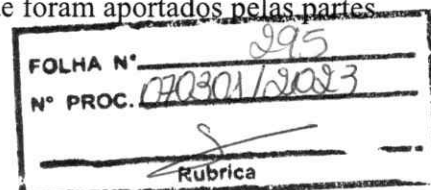 e foram aportados pelas partes
FOLHA Nº 295
Nº PROC. 070301/2023
Rubrica